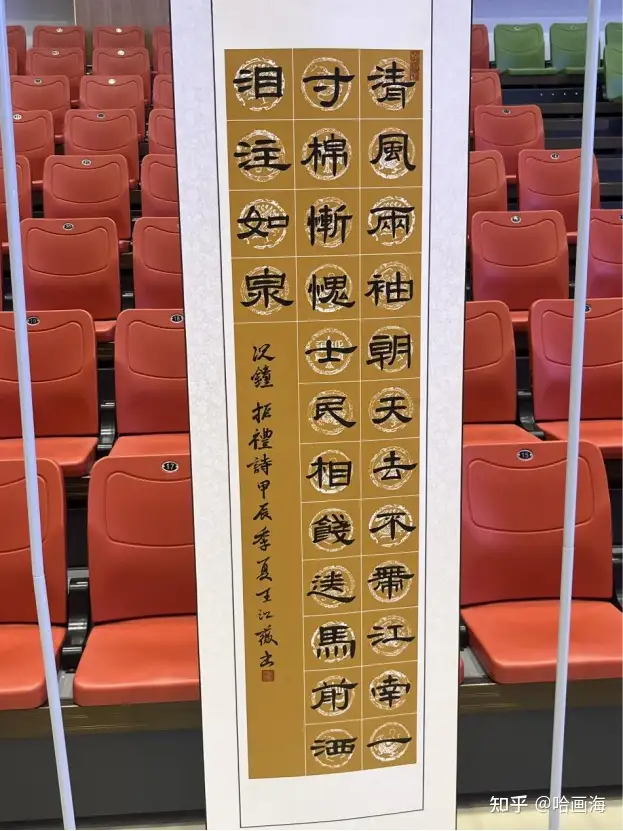 清風兩袖朝天去不帶江南一
寸棉慚愧士民相餞送馬前洒
泪注如泉
况鐘 拒禮詩甲辰季夏王江薇书
17
知乎 @哈画海